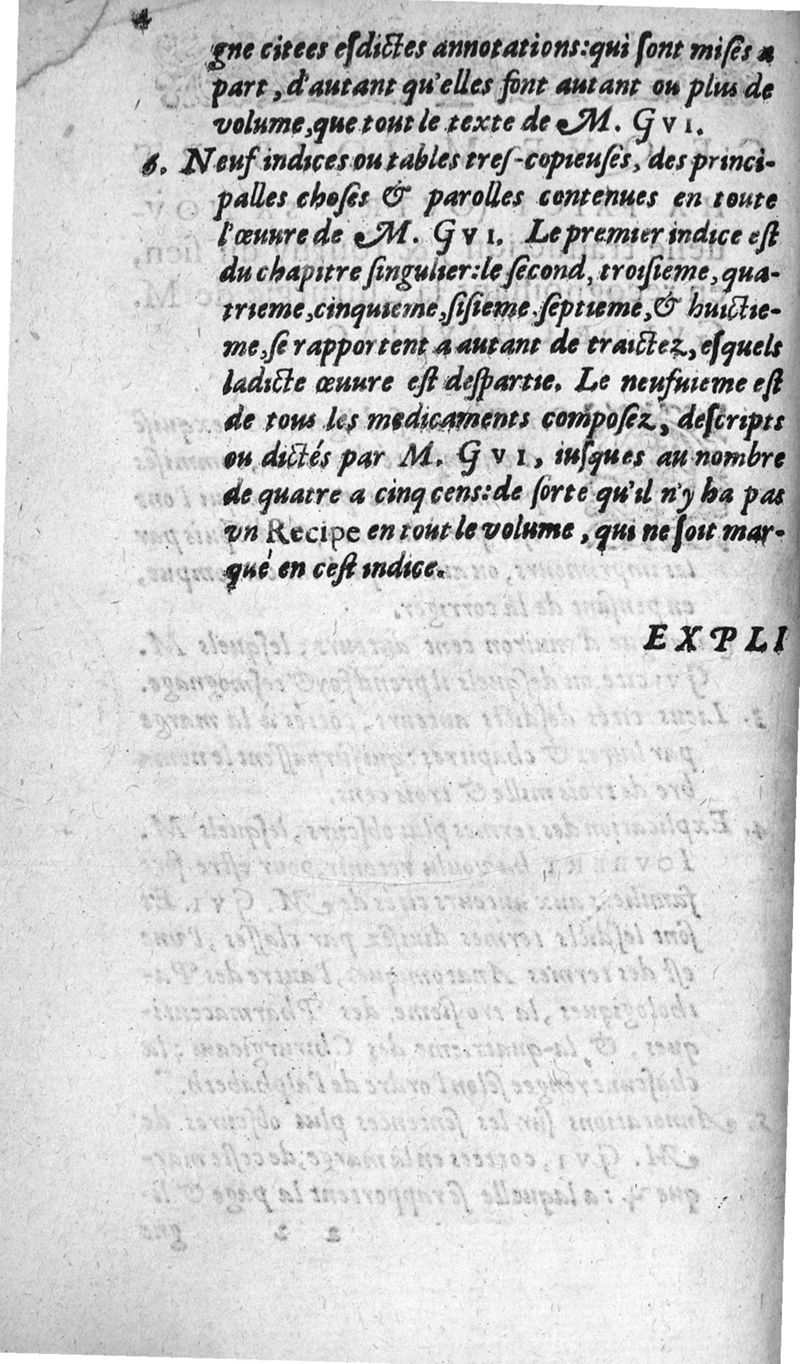 4
gne citees eſdictes annotations:qui ſont miſes a
part, d'autant qu'elles ſont autant ou plus de
volume, que tout le texte de M. GVI.
6. Neuf indices ou tables treſ-copieuſes, des princi-
palles choſes & parolles contenues en toute
l'œuure de M. GVI. Le premier indice eſt
du chapitre ſingulier:le ſecond, troiſieme, qua-
trieme, cinquieme, ſiſieme, ſeptieme, & huictie-
me, ſe rapportent a autant de traictez, eſquels
ladicte œuure eſt deſpartie. Le neufuieme eſt
de tous les medicaments compoſez, deſcripts
ou dictés par M. GVI, iuſques au nombre
de quatre a cinq cens:de ſorte qu'il n'y ha pas
vn Recipe en tout le volume, qui ne ſoit mar-
qué en ceſt indice.
EXPLI